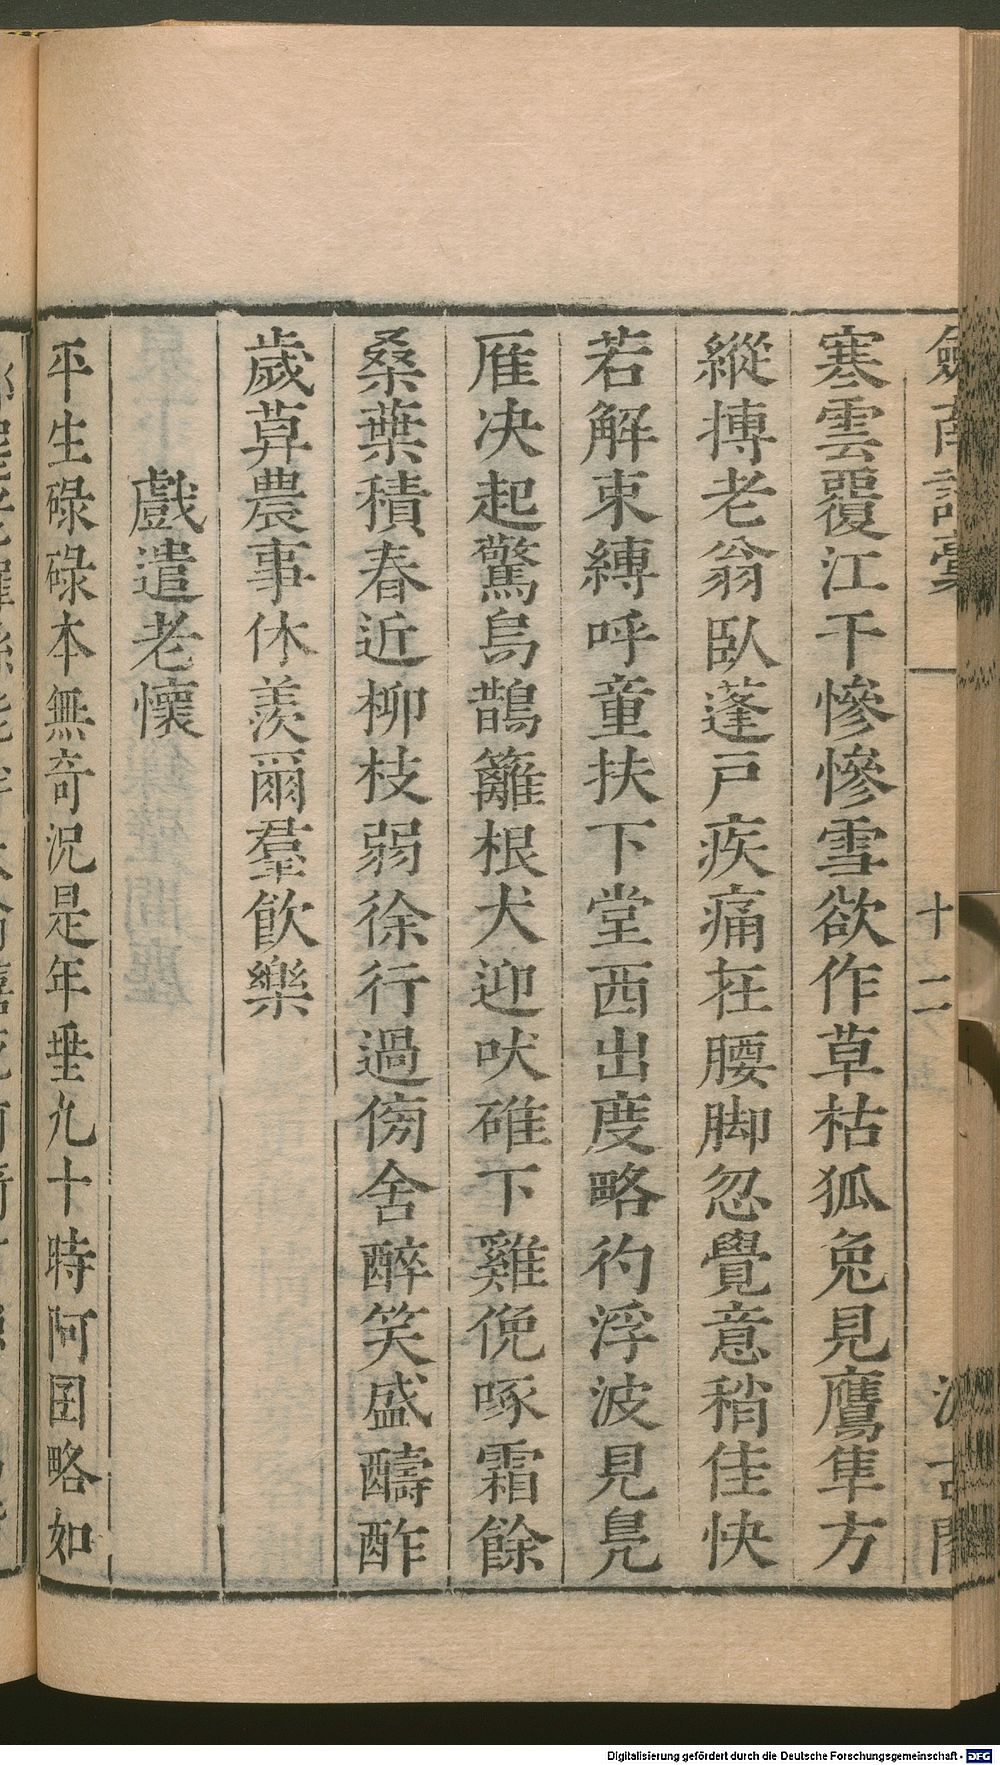 劍南詩稾 十二 汲古閣
寒雲覆江干慘慘雪欲作草枯狐兔見鷹隼方
縱搏老翁臥蓬戸疾痛在腰脚忽覺意稍佳快
若解束縛呼童扶下堂西出度略彴浮波見鳧
雁决起驚烏鵲籬根犬迎吠碓下雞俛啄霜餘
桑葉積春近柳枝弱徐行過傍舍醉笑盛醻酢
歲莫農事休羨爾羣飲樂
戲遣老懷
平生碌碌本無奇况是年垂九十時阿囝略如
Digitalisierung gefördert durch die Deutsche Forschungsgemeinschaft - DFG